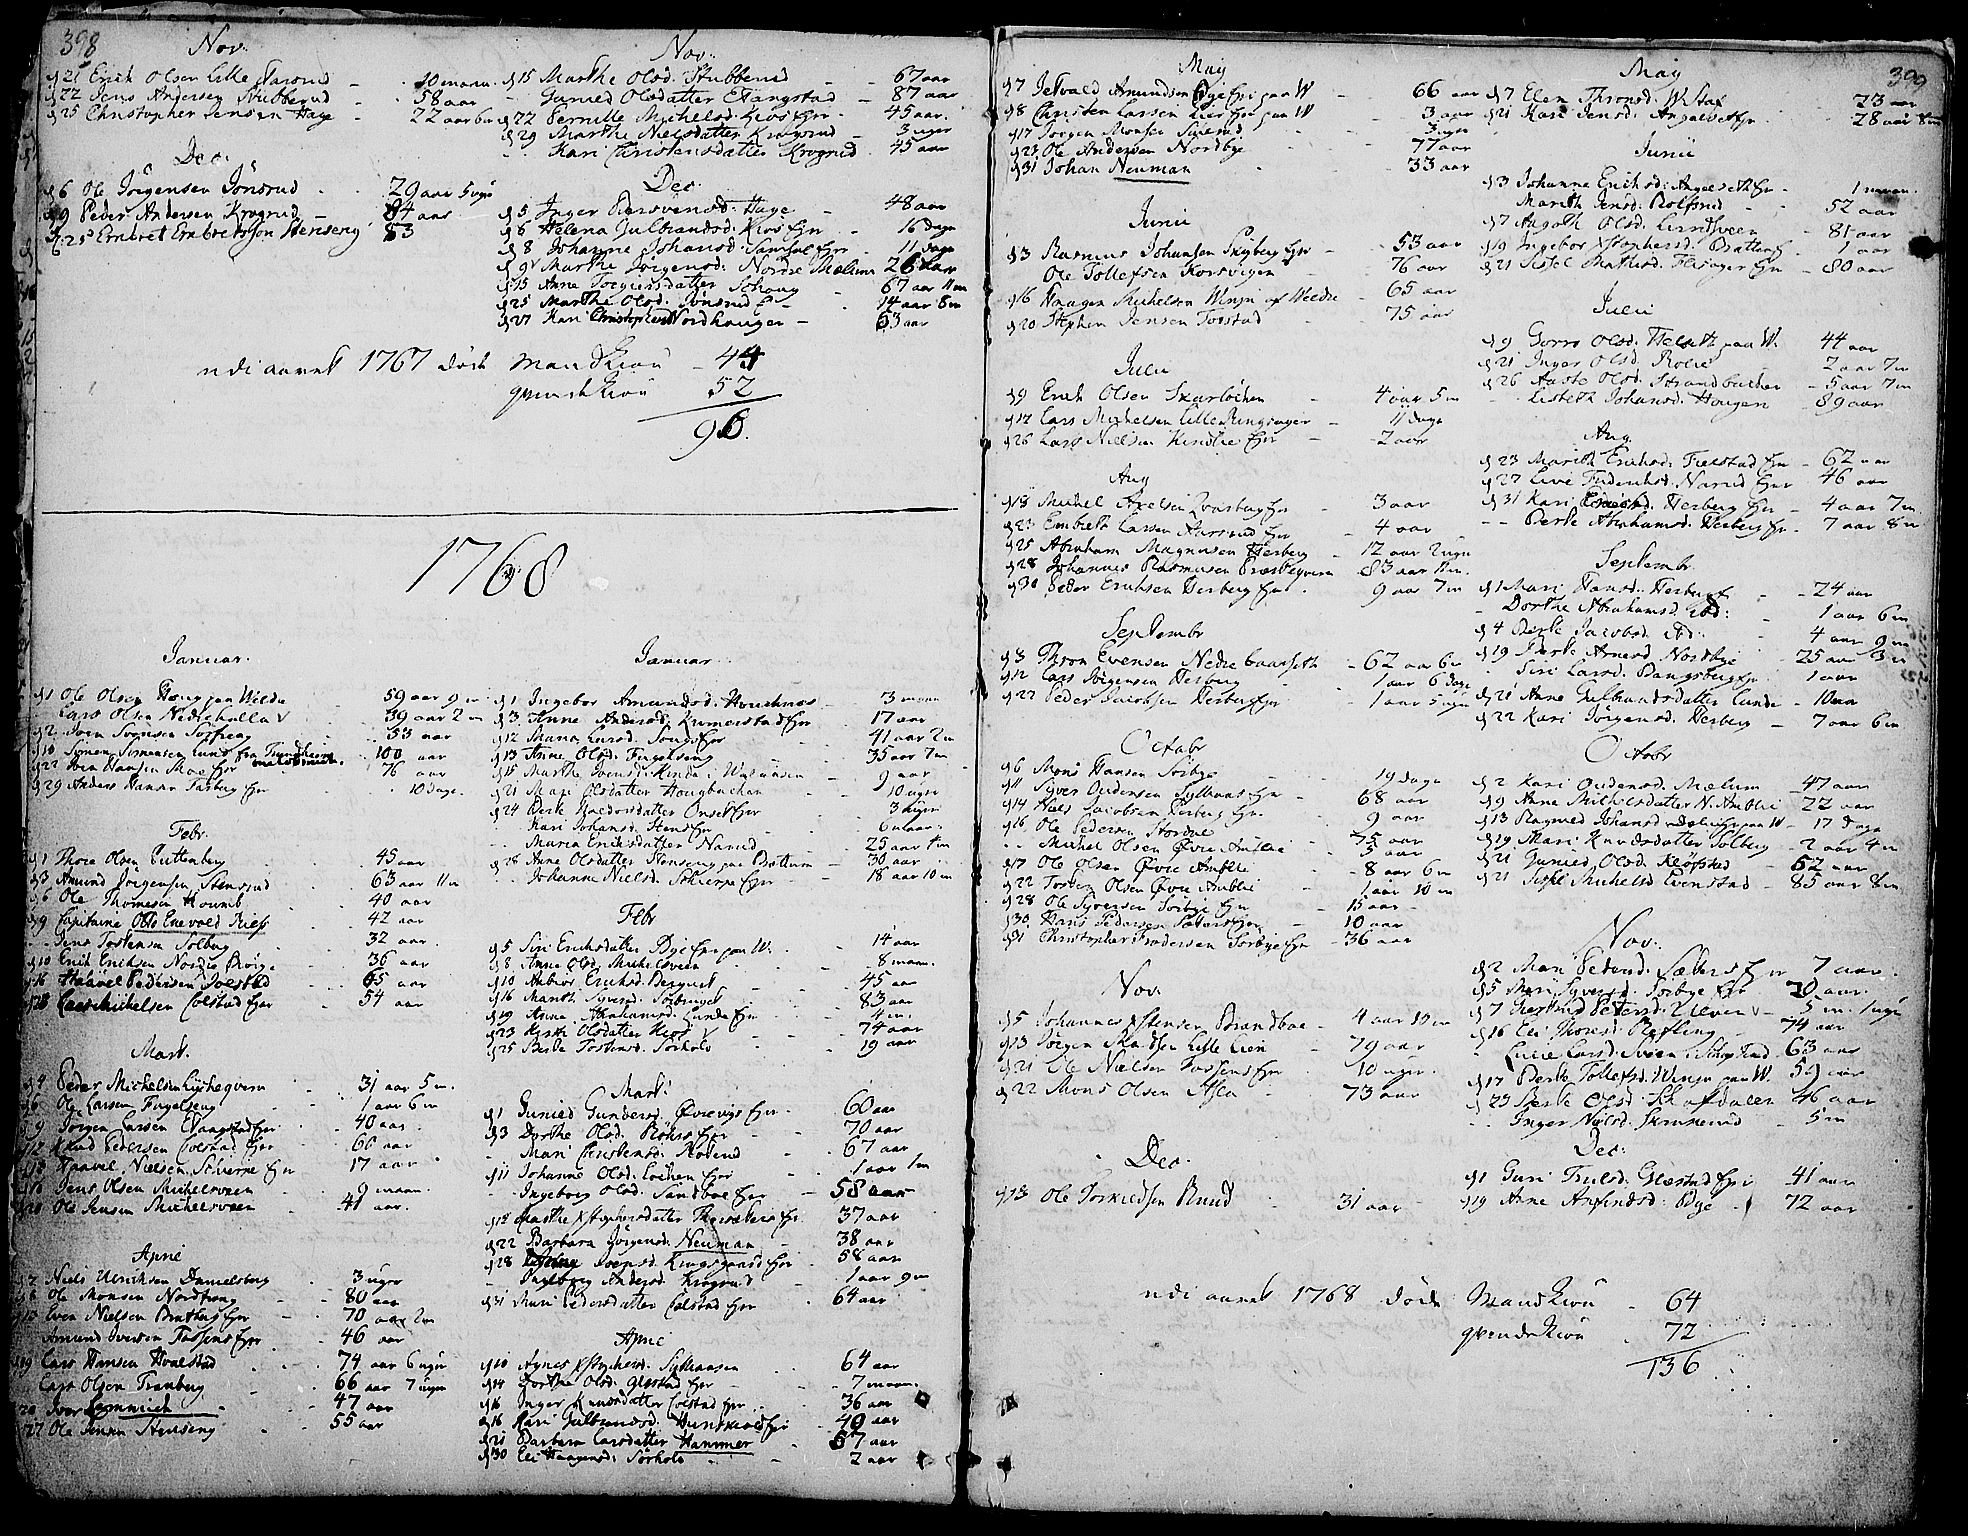 398
Nov.
d 21 Erich Olsen Lille Aasrud - 10 maan.
d 22 Jens Andersen Stubberud - 58 aar
d 25 Christopher Jensen Hage - 22 aar 6
Dec.
d 6 Ole Jörgensen Jönsrud - 29 aar 5 ug
d 9 Peder Andersen Krogrud - 84 aar
d 25 Embret Embretsen Stenseng 53
Nov.
d 15 Marthe Olsd. Stubberud - 67 aar
Gunild Olsdatter Evangstad - 87 aar
d 22 Pernille Michelsd. Kios Eyer - 45 aar.
d 29 Marthe Nielsdatter Krogrud - 3 uger
Kari Christensdatter Krogrud - 45 aar
Dec.
d 5 Inger Hage - 48 aar
d 6 Helena Gulbrandsd. Kios Ejer - 16 Dage
d 8 Johanne Johansd. Ejer - 11 dage
d 9 Marthe Jörgensd. Nordre Mælum 26 aar
d 15 Anne Joegersdatter Schoug - 67 aar 11 m
d 25 Marthe Olsd. Jönsrud - 14 aar 8 m
d 27 Kari Christophersd Nordhaugen - 53 aar
ndi aaret 1767 døde Mandkiøn - 44
qvindekiøn 52
96.
1768
Januar.
d 1 Ole Olsen Houg paa Welde 59 aar 9 m
Lars Olsen Nedrekolla 39 aar 2 m
d 2 Sven Svensen Sorfreng 53 aar
d 10 Simen Simensen Lund fra Trundheim 100 aar
d 22 Hansen Moe Ejer 76 aar
d 29 Anders Hansen Farberg Ejer 10 Dage.
Febr.
d 1 Thore Olsen Puttenberg 45 aar
d 3 Amund Jörgensen Stensrud 63 aar 11 m
d 6 Ole Thomesen Houmb 40 aar
d 9 Capitaine Otto Enevold 42 aar
Jens Tostensen Solberg 32 aar.
d 10 Erich Erichsen Nordre 36 aar
d 16 Haavel Pedersen Joestad 65 aar
d 28 Lars Michelsen Colstad Ejer 54 aar
Mart.
d 4 Peder Michelsen Kirchequern 31 aar 5 m.
d 6 Ole Larsen Fingelseng 1 aar 6 m
d 9 Jörgen Larsen Evangstad Ejer 40 aar
d 12 Knud Pedersen Colstad Ejer 60 aar
Haavel Nielsen Schierpe Ejer 17 aar
Jens Olsen Michelsveen 9 maan.
Ole Jensen Michelsveen 41 aar.
April
Niels Ulrichsen Danielsberg 3 uger
Ole Monsen Nordstrong 80 aar
Even Nielsen Bratberg Ejer 70 aar 2 m
Amund Iversen Fossens Ejer 46 aar
Lars Hansen Hvalstad 74 aar 6 uger
Lars Olsen Tranberg 66 aar 7 uger
Iver Lammich 47 aar
27 Ole Jensen Stenseng 55 aar
Januar
d 1 Ingebor Amundsd. Houchmoe 3 maan
d 3 Anne Andersd. Kumerstad Ejer 17 aar
d 12 Maria Larsd. Songs Ejer 41 aar 2 m
d 13 Anne Olsd. Fingelseng 35 aar 7 m
d 15 Marthe Svensd. 9 aar
d 21 Mari Olsdatter Hougbachen 10 uger
d 24 Berte Onset Ejer 3 uger
Kari Johansd. Stens Ejer 6 maan.
Maria Erichsdatter Narud 25 aar
d 28 Anne Olsdatter Stenseng paa Brøttum 30 aar
Johanne Nielsd. Schierpe Ejer 18 aar 10 m
Febr
d 5 Siri Erichsdatter Bye Ejer paa W. 14 aar
d 8 Anne Olsd. Michelsveen 8 maan.
d 10 Anbior Erichsd. Bergset 45 aar
d 16 Marith Syversd. Solberget 83 aar
d 19 Anne Abrahamsd. Lunde Ejer 4 m.
d 23 Kirsti Olsdatter Kios 74 aar
d 25 Berte Tostensd. Sörhole 19 aar
Mart.
d 1 Gunild Gundersd. Øvrevigs Ejer 60 aar
d 3 Dorthe Olsd. Röhrs Ejer 70 aar
Mari Christensd. Roterud 67 aar
d 11 Johanne Olsd. Lochen Ejer 1 aar 1 m
Ingeborg Olsd. Sandboe Ejer 58 aar
d 18 Marthe Xstophersdatter Ejer 37 aar
d 22 Barbara Jörgensd. Neuman 38 aar
d 28 Joensd. Krogsgaard Ejer 58 aar
Ingeborg Andersd. Krogrud 1 aar 9 m
d 31 Mari Pedersdatter Colstad Ejer 64 aar
April
d 10 Agnes Xstophersd. Sylthausen 64 aar
d 14 Dorthe Olsd. Glestad Ejer 7 maan.
d 16 Inger Knudsdatter Colstad Ejer 36 aar
d 16 Kari Gulbrandsd. Hunskaal Ejer 40 aar
d 21 Barbara Larsdatter Hammer 87 aar
d 30 Eli Haagensd. Sörhole 2 aar
399
May
d 7 Jetvald Amundsen Bye Ejer paa W 66 aar
d 8 Christen Larsen Lier Ejer paa W 3 aar
d 17 Jörgen Monsen 3 uger
d 23 Ole Andersen Nordbye 77 aar
d 31 Johan Neuman 33 aar
Junii
d 3 Rasmus Johansen Skyberg Ejer 53 aar
Ole Tollefsen Korsvigen 76 aar
d 16 Haagen Michelsen Winju af Weldre 65 aar
d 20 Stephen Jensen Joestad 75 aar
Julii
d 9 Erich Olsen Skarlöchen 4 aar 5 m
d 12 Lars Michelsen Lille Ringsager 11 dage
d 26 Lars Nielsen Kindlie Ejer 2 aar
Aug
d 18 Michel Axelsen Ejer 3 aar
d 23 Embret Larsen Aasrud Ejer 4 aar
d 25 Abraham Magnusen Herberg 12 aar 2 uger
d 28 Johannes Rasmusen Præstequern 83 aar 11 m.
d 30 Peder Erichsen Herberg Ejer 9 aar 7 m
Septembr
d 3 Thron Evensen Nedre Caarseth 62 aar 6 m
d 12 Lars Jörgensen Herberg 1 aar 6 dage
d 22 Peder Jacobsen Herberg Ejer 1 aar 5 uger
Octobr
d 6 Mons Hansen Sörbye 19 dage
d 11 Syver Oudensen Sylthaus Ejer 68 aar
d 14 Niels Jacobsen Ejer 9 aar
d 16 Ole Pedersen Stordue 75 aar
Michel Olsen Øvre Amblie 5 aar
d 17 Ole Olsen Øvre Amblie 8 aar 6 m
d 22 Tosten Olsen Øvre Amblie 1 aar 10 m
d 28 Ole Syversen Sörbye Ejer 15 aar
d 30 Hans Pedersen Ejer 10 aar
d 31 Christopher Pedersen Sörbye Ejer 36 aar
Nov.
d 5 Johannes Xstensen Brandboe 4 aar 10 m
d 13 Jörgen Knudsen Lille Lien 79 aar
d 21 Ole Nielsen Fossens Ejer 10 uger.
d 22 Mons Olsen Asla 73 aar
Dec.
d 13 Ole Torkildsen Ruud 31 aar
May
d 7 Elen Thronsd. W. Staf 73 aar
d 21 Kari Jensd. Angelset Ejer 28 aar 8 m
Junii
d 3 Johanne Erichsd. Angelseth Ejer 1 maan.
Marith Jensd. Rolfsrud 52 aar
d 7 Aagoth Olsd. Lundsveen 81 aar
d 19 Ingebor Xstophersd. Bratberg 1 aar
d 21 Sissel Mathisd. Flisager Ejer 80 aar
Julii
d 9 Gorro Olsd. Helseth paa W. 44 aar
d 21 Inger Olsd. Rolie 2 aar 7 m
d 26 Aaste Olsd. Strandbachen 5 aar 7 m
Lisbeth Johansd. Hougen 89 aar
Aug.
d 23 Marith Erichsd. Fielstad Ejer 62 aar
d 27 Live Friderichsd. Narud Ejer 46 aar
d 31 Kari Herberg Ejer 4 aar 7 m.
Berte Abrahamsd. Herberg Ejer 7 aar 8 m
Septembr.
d 1 Mari Hansd. Herberg 24 aar
Dorthe Abrahamsd. ibd: 1 aar 6 m
d 4 Berte Jacobsd. ibd: 4 aar 9 m
d 19 Berte Arnesd. Nordbye 25 aar 3 m
Siri Larsd. Bangsberg Ejer 1 aar
d 21 Anne Gulbrandsdatter Lunde 10 aar
d 22 Kari Jörgensd. Herberg 7 aar 6 m
Octobr
d 2 Kari Oudensd. Mælum 47 aar
d 9 Anne Michelsdatter N. Amblie 22 aar
d 13 Ragnild Johansd. Ejer paa W 17 Dage
d 19 Mari Knudsdatter Solberg 2 aar 4 m
d 21 Gunild Olsd. Kløfstad 62 aar
d 21 Sissel Michelsd Evenstad 85 aar 8 m
Nov.
d 2 Mari Pedersd. Sæters Ejer 7 aar.
d 5 Mari Syversd. Sörbye Ejer 70 aar.
d 7 Pedersd. Ulven 5 m. 1 uge
d 16 Eli Thoresd. Refling 74 aar
Lucie Larsd. 63 aar
d 17 Berte Tollefsd. Winju paa W. 59 aar
d 23 Berte Olsd. Schafdalen 46 aar
Inger Nielsd. Skrinnerud 5 m
Dec.
d 1 Guri Trulsd. Glæstad Ejer 41 aar
d 19 Anne Arfindsd. Bye 72 aar
ndi aaret 1768 døde Mandkiøn - 64
qvindekiøn 72
136